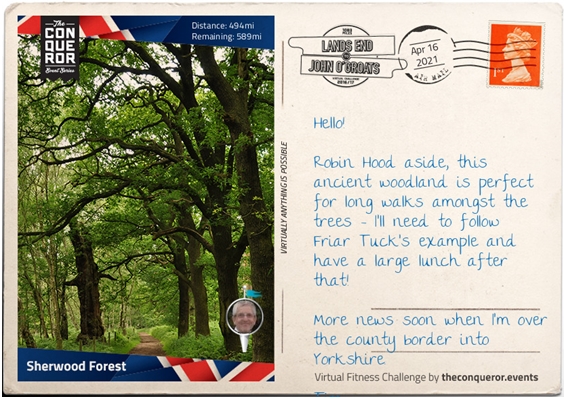 The
CONQUEROR
Event Series
Distance: 494mi
Remaining: 589mi
Sherwood Forest
VIRTUALLY ANYTHING IS POSSIBLE
LANDS END
TO
JOHN O'GROATS
Apr 16
2021
AIR MAIL
1ST
Hello!
Robin Hood aside, this
ancient woodland is perfect
for long walks amongst the
trees - I'll need to follow
Friar Tuck's example and
have a large lunch after
that!
More news soon when I'm over
the county border into
Yorkshire
Virtual Fitness Challenge by theconqueror.events